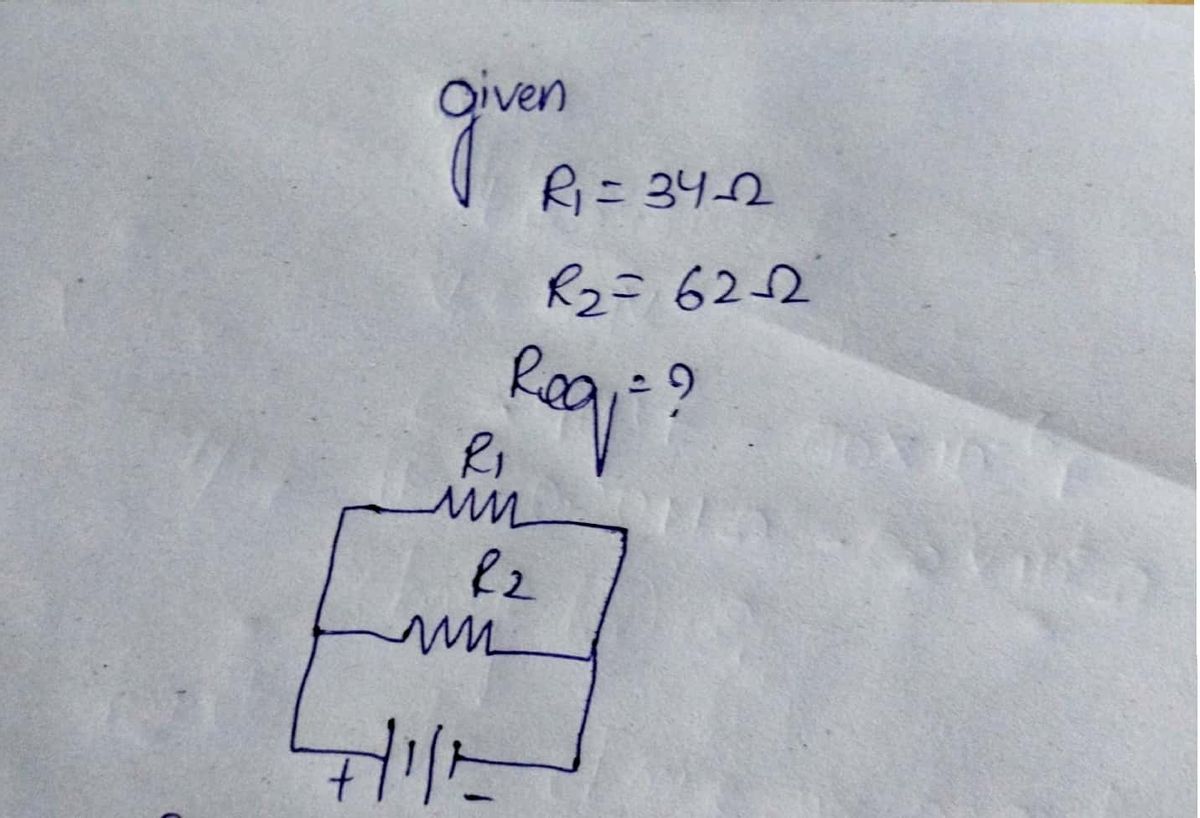 given
R1 = 34Ω
R2 = 62Ω
Req = ?
R1
R2
+ -